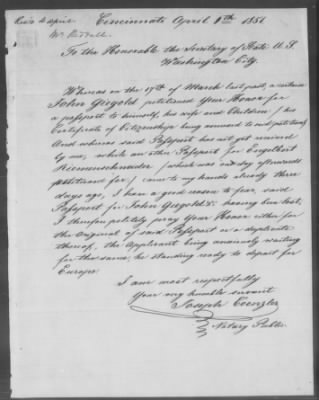 Cincinnati April 8th 1851
Mr. Riddell
To the Honorable the Secretary of State U.S.
Washington City.
Whereas on the 17th of March last past, a certain
John Giegold petitioned Your Honor for
a passport to himself, his wife and Children / his
Certificate of Citizenship being annexed to said petition/
And whereas said Passport has not yet received
by me, while an other Passport for Engelbert
Riemenschneider / which was one day afterwards
petitioned for / came to my hands already three
days ago, I have a good reason to fear, said
Passport for John Giegold having been lost;
I therefore politely pray Your Honor either for
the Original of said Passport or a duplicate
thereof, the Applicant being anxiously waiting
for the same, he standing ready to depart for
Europe.
I am most respectfully
Your very humble servant
Joseph
Notary Public.